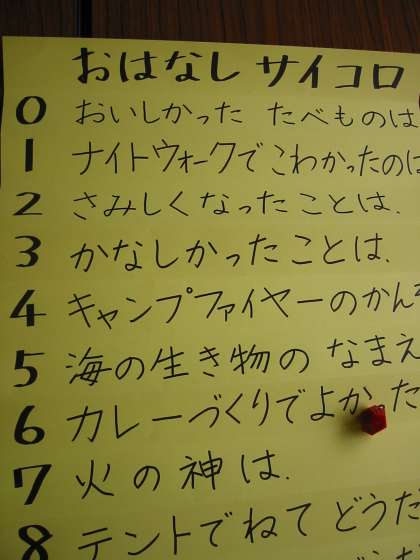 おはなし サイコロ
0 おいしかった たべものは
1 ナイトウォークで こわかったのは
2 さみしく なった ことは.
3 かなしかった ことは.
4 キャンプファイヤーのかん
5 海の生き物の なまえ
6 カレーづくりでよかった
7 火の神は.
8 テントでねて どうだ